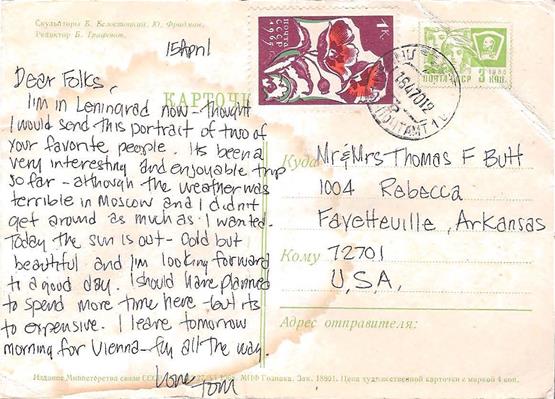 Скульпторы Б. Белостоцкий, Ю. Фридман,
Редактор Б. Трафенок.
15 April
Dear Folks,
I'm in Leningrad now - thought
I would send this portrait of two of
your favorite people. Its been a
very interesting and enjoyable trip
so far - although the weather was
terrible in Moscow and I didn't
get around as much as I wanted.
Today the sun is out - cold but
beautiful and I'm looking forward
to a good day. I should have planned
to spend more time here - but its
to expensive. I leave tomorrow
morning for Vienna - fly all the way.
Love
Tom
КАРТОЧКА
1К.
ПОЧТА
СССР
ПОЧТАМТ
ПОЧТА СССР 3 КОП.
Куда
Mr & Mrs Thomas F Butt
1004 Rebecca
Fayetteville, Arkansas
Кому 72701
U.S.A.
Адрес отправителя:
Издание Министерства связи СССР МПФ Гознака. Зак. 18801. Цена художественной карточки с маркой 4 коп.